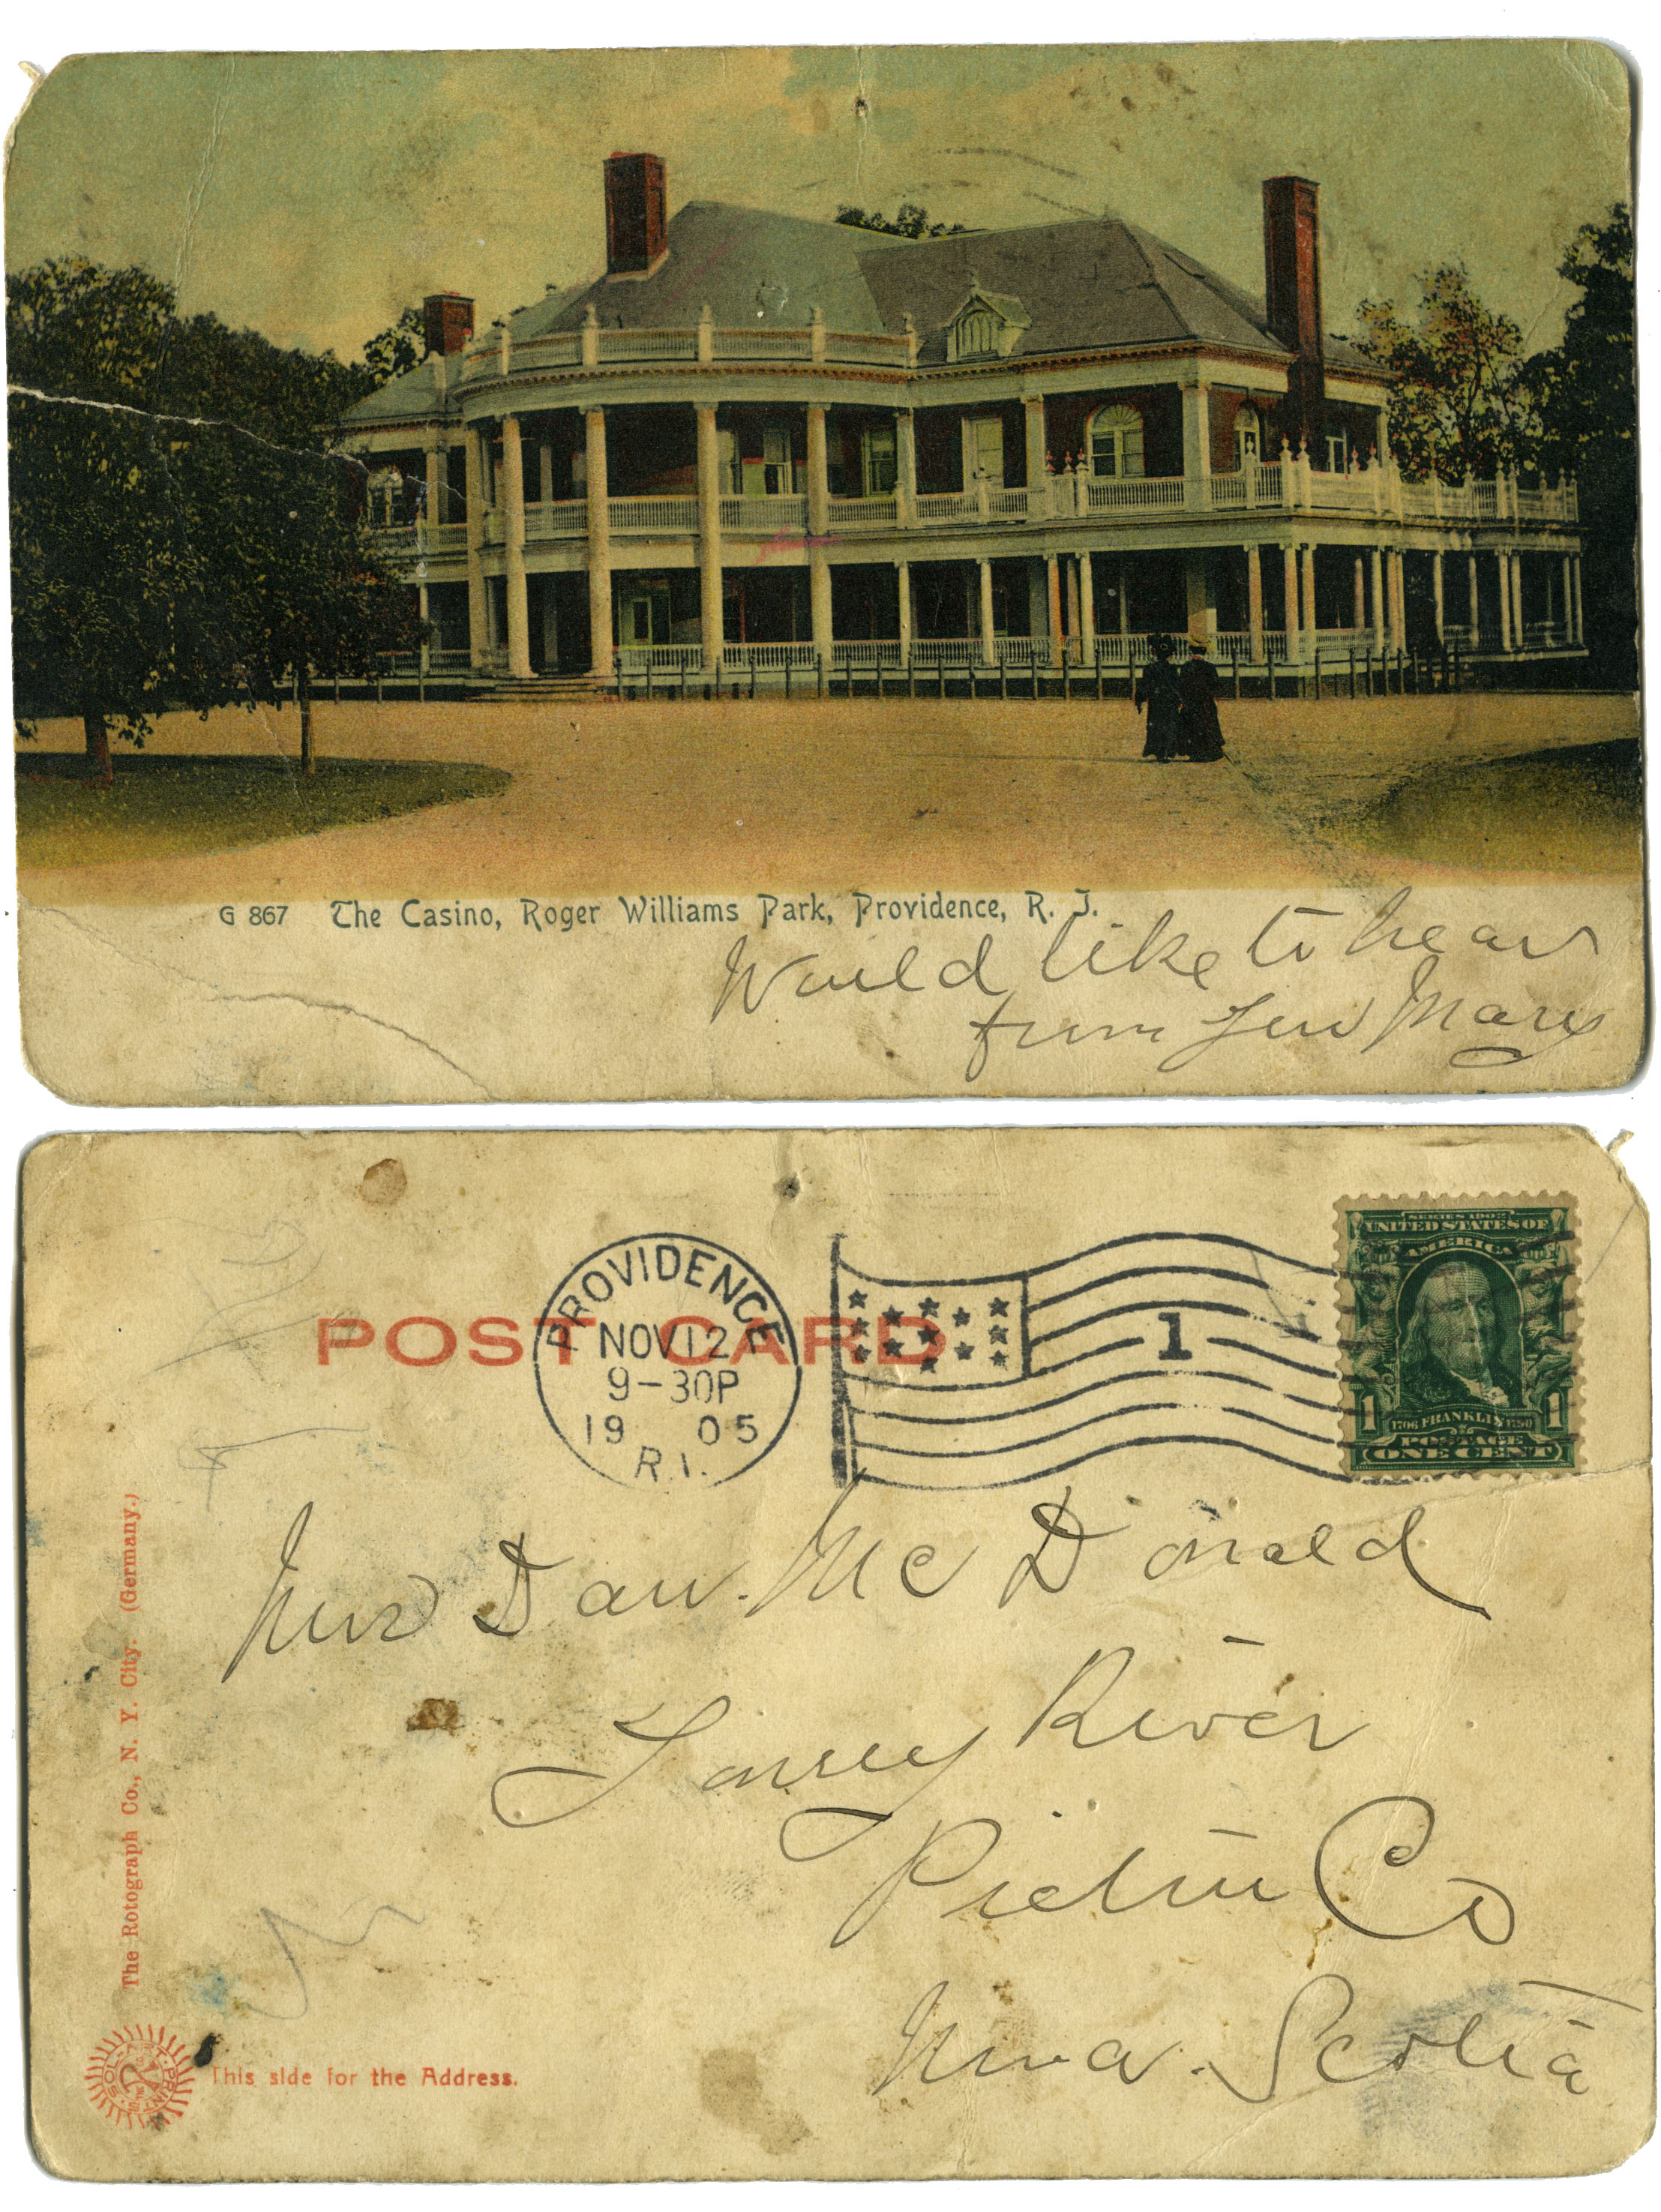 G 867 The Casino, Roger Williams Park, Providence, R. I.
Would like to hear
from you Mary
POST CARD
PROVIDENCE
NOV 12
9-30P
19 05
R.I.
1
SERIES 1902
UNITED STATES OF
AMERICA
1 1
1706 FRANKLIN 1790
POSTAGE
ONE CENT
Mrs Dan. McDonald
River
Pictou Co
Nova Scotia
The Rotograph Co., N. Y. City. (Germany.)
SOL-ART PRINTS
This side for the Address.